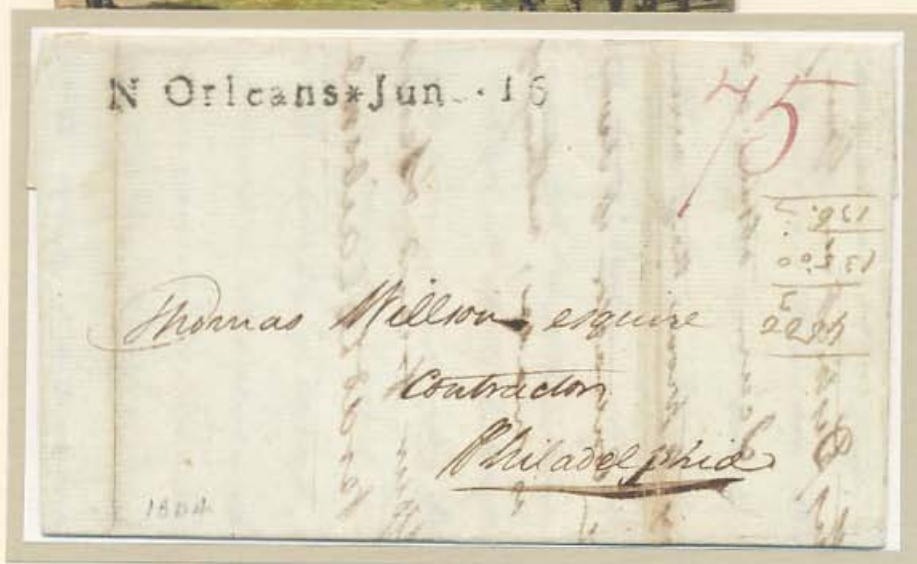 N Orleans*Jun 16
75
Thomas Willson esquire
Contractor
Philadelphia
1804